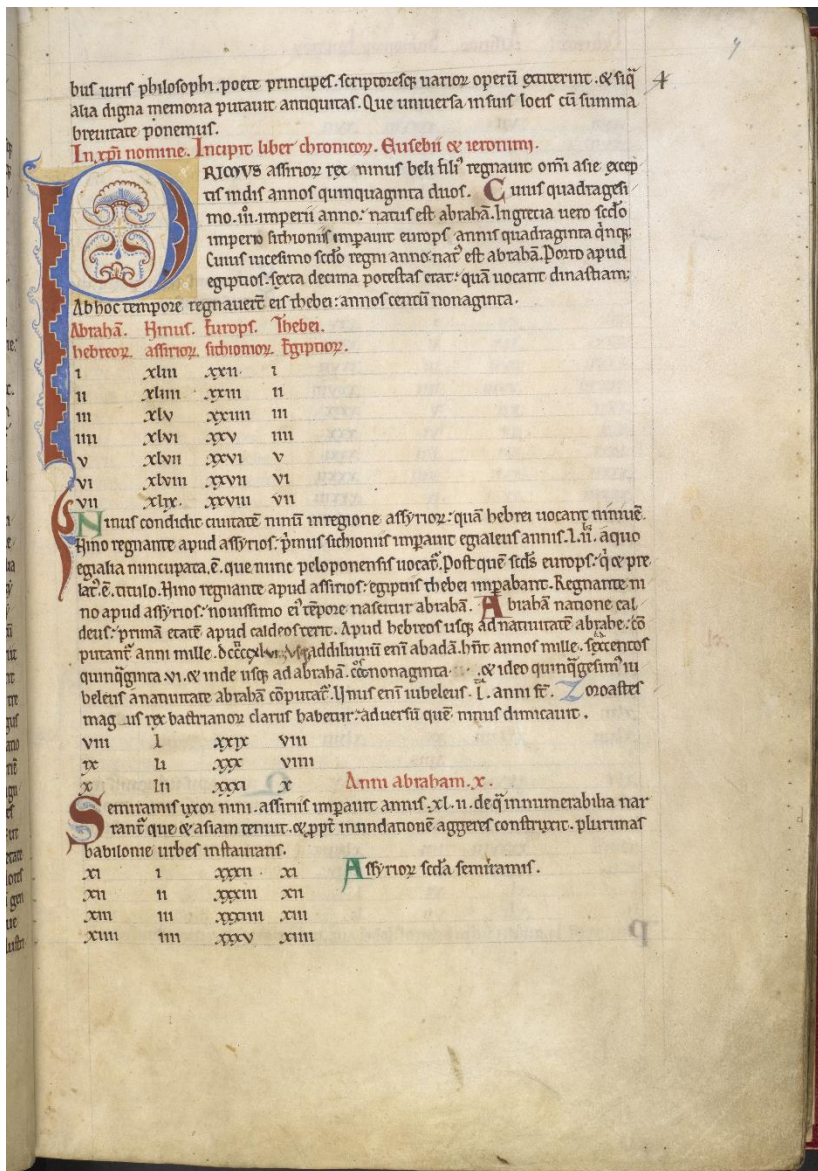 bus iuris philosophi. poete principes. scriptoresq; varioꝝ operū extiterint. & siq̄
alia digna memoria putauit antiquitas. Que universa in suis locis cū summa
breuitate ponemus.
In xp̄i nomine. Incipit liber chronicoꝝ. Eusebii & ieronimi.
PRIMVS assirioꝝ rex ninus beli filiꝰ regnauit omī asie excep
tis indis annos quinquaginta duos. Cuius quadragesi
mo. iii. imperii anno: natus est abrahā. In grecia uero scd̄o
imperio sithionis imꝑauit europs annis quadraginta q̄nq;
Cuius uicesimo scd̄o regni anno: natꝰ est abrahā. Porro apud
egiptios. sexta decima potestas erat: quā uocant dinastiam;
Ab hoc tempore regnauer̄t eis thebei: annos centū nonaginta.
Abrahā. Ninus. Europs. Thebei.
hebreoꝝ. assirioꝝ. sithionioꝝ. Egiptioꝝ.
i xliii xxii. i
ii xliiii xxiii ii
iii xlv xxiiii iii
iiii xlvi xxv iiii
v xlvii xxvi v
vi xlviii xxvii vi
vii xlix. xxviii vii
Ninus condidit ciuitatē ninū in regione assyrioꝝ: quā hebrei uocant niniuē.
Nino regnante apud assyrios: p̄mus sithionius imꝑauit egialeus annis. l. ii. a quo
egialia nuncupata. ē. que nunc peloponensis uocat᷑. Post quē scd̄s europs: q̄ & pre
latꝰ. ē. titulo. Nino regnante apud assirios: egiptiis thebei imꝑabant. Regnante ni
no apud assyrios: nouissimo eiꝰ tēpore nascitur abrahā. Abrahā natione cal
deus: primā etatē apud caldeos terit. Apud hebreos usq; ad natiuitatē abrahe: cō
putant᷑ anni mille. dccccxlvi. Usq; ad diluuiū enī ab adā. hn̄t annos mille. sexcentos
quinq̄ginta. vi. & inde usq; ad abrahā. nonaginta & ideo quinq̄gesimꝰ iu
beleus a natiuitate abrahā cōputat᷑. Unus enī iubeleus. l. anni st̄. Zoroastes
mag us rex bactrianoꝝ clarus habetur: aduersū quē ninus dimicauit.
viii l xxix viii
ix li xxx viiii
x lii xxxi x Anni abraham. x.
Semiramis uxor nini. assiriis imꝑauit annis. xl. ii. de q̄ innumerabilia nar
rant᷑. que & asiam tenuit. & ꝓpt̄ inundationē aggeres construxit. plurimas
babilonie urbes instaurans.
xi i xxxii xi Assyrioꝝ scd̄a semiramis.
xii ii xxxiii xii
xiii iii xxxiiii xiii
xiiii iiii xxxv xiiii